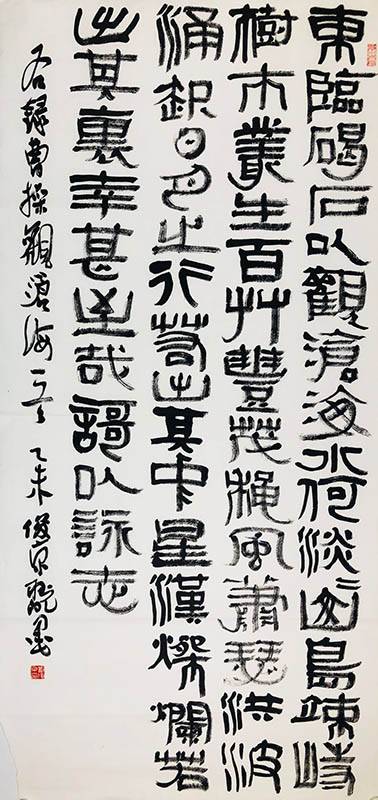 東臨碣石以觀滄海水何淡〻山島竦峙
樹木叢生百艸豐茂穐風蕭瑟洪波
涌起日月之行若出其中星漢燦爛若
出其裏幸甚至哉謌以詠志
右錄曹操觀滄海一首 乙未